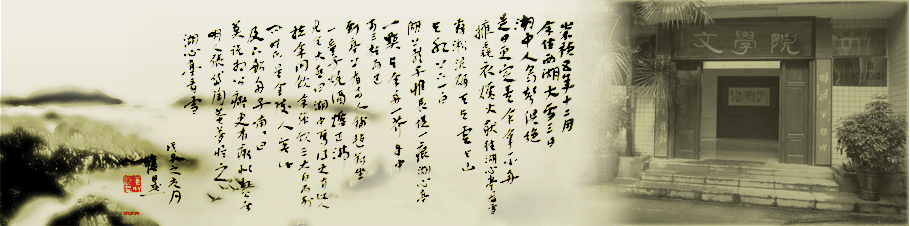 崇禎五年十二月
余住西湖大雪三日
湖中人鳥聲俱絕
是日更定矣余拏一小舟
擁毳衣爐火獨往湖心亭看雪
霧凇沆碭天與雲與山
與水上下一白
湖上影子惟長堤一痕湖心亭
一點與余舟一芥舟中
人兩三粒而已
到亭上有兩人鋪氈對坐
一童子燒酒爐正沸
見余大喜曰湖中焉得更有此人
拉余同飲余強飲三大白而別
金陵人客此
及下船舟子喃喃曰
莫說相公癡更有癡似相公者
明張岱陶庵夢憶之
湖心亭看雪
文學院